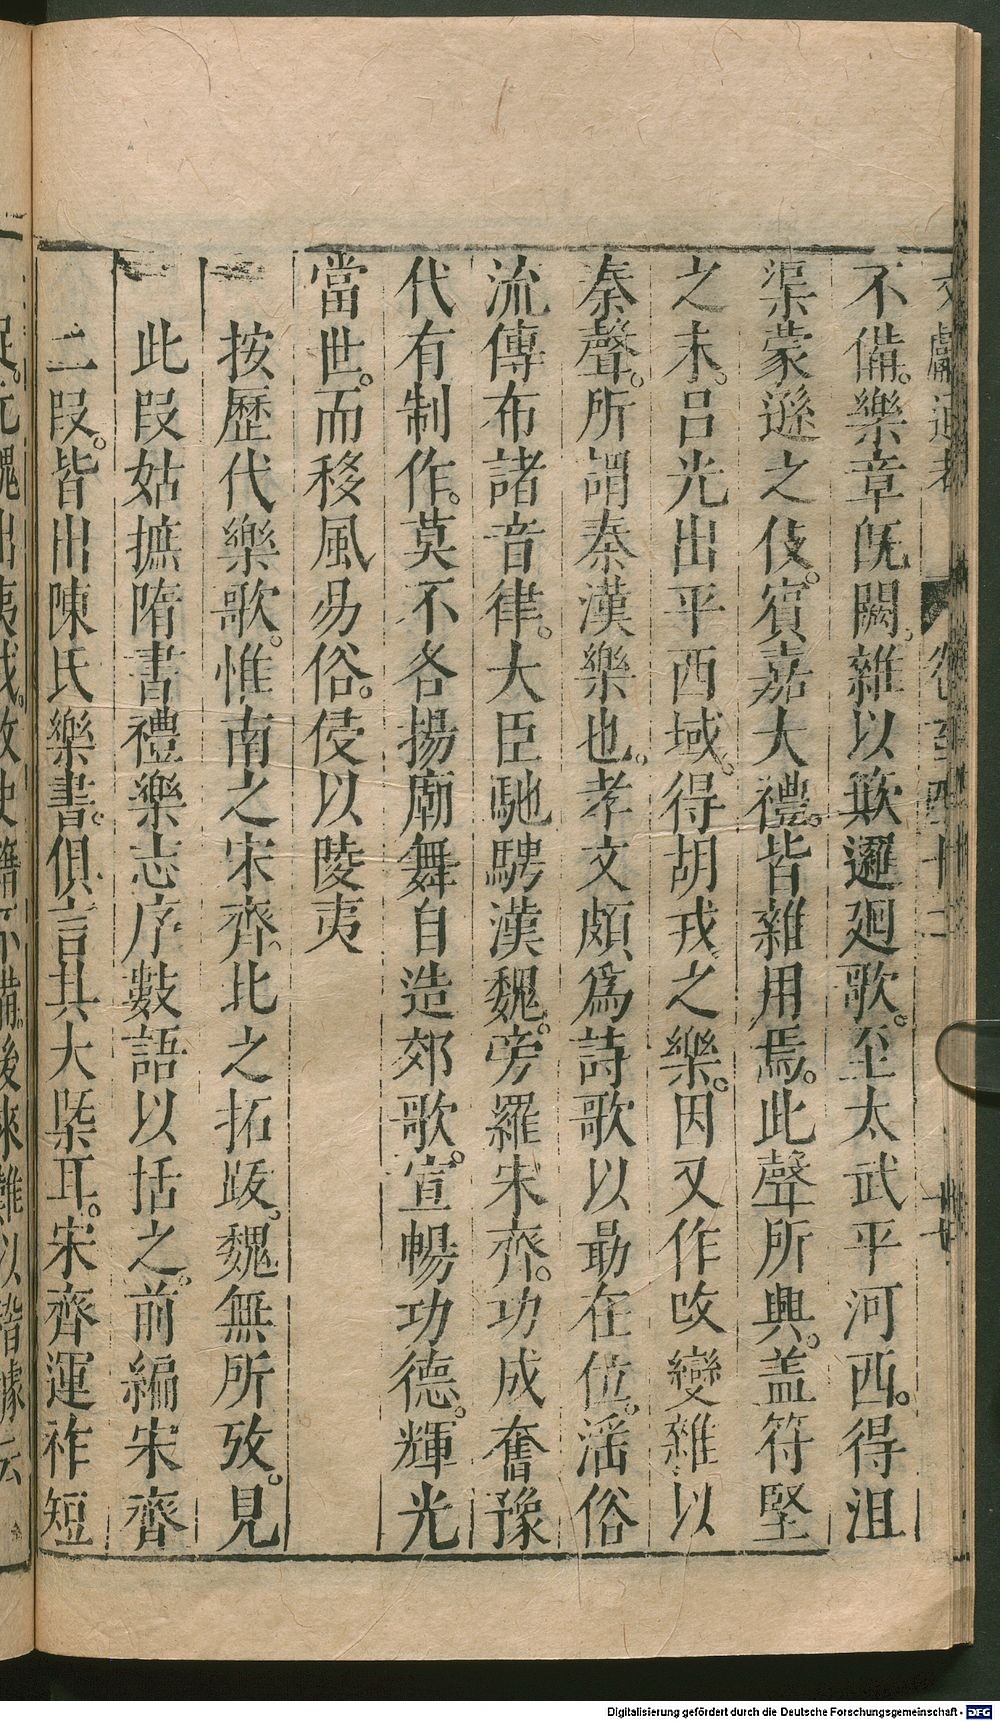 不備。樂章旣闕。雜以簸邏廻歌。至太武平河西。得沮
渠蒙遜之伎。賓嘉大禮。皆雜用焉。此聲所興。盖符堅
之末。呂光出平西域。得胡戎之樂。因又作改變雜以
秦聲。所謂秦漢樂也。孝文頗爲詩歌以勗在位。謡俗
流傳布諸音律。大臣馳騁漢魏。旁羅宋齊。功成奮豫
代有制作。莫不各揚廟舞自造郊歌。宣暢功德。輝光
當世。而移風易俗。侵以陵夷
按歷代樂歌。惟南之宋齊。北之拓跋。魏無所攷。見
此段姑摭隋書禮樂志序數語以括之。前編宋齊
二段。皆出陳氏樂書。俱言其大槩耳。宋齊運祚短
Digitalisierung gefördert durch die Deutsche Forschungsgemeinschaft - DFG